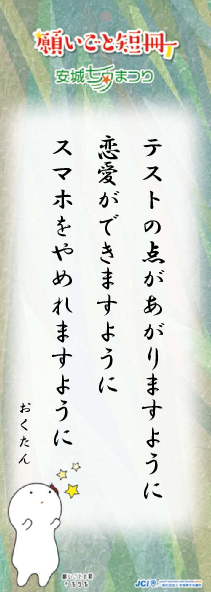 願いごと短冊
安城七夕まつり
テストの点があがりますように
恋愛ができますように
スマホをやめれますように
おくたん
JCI